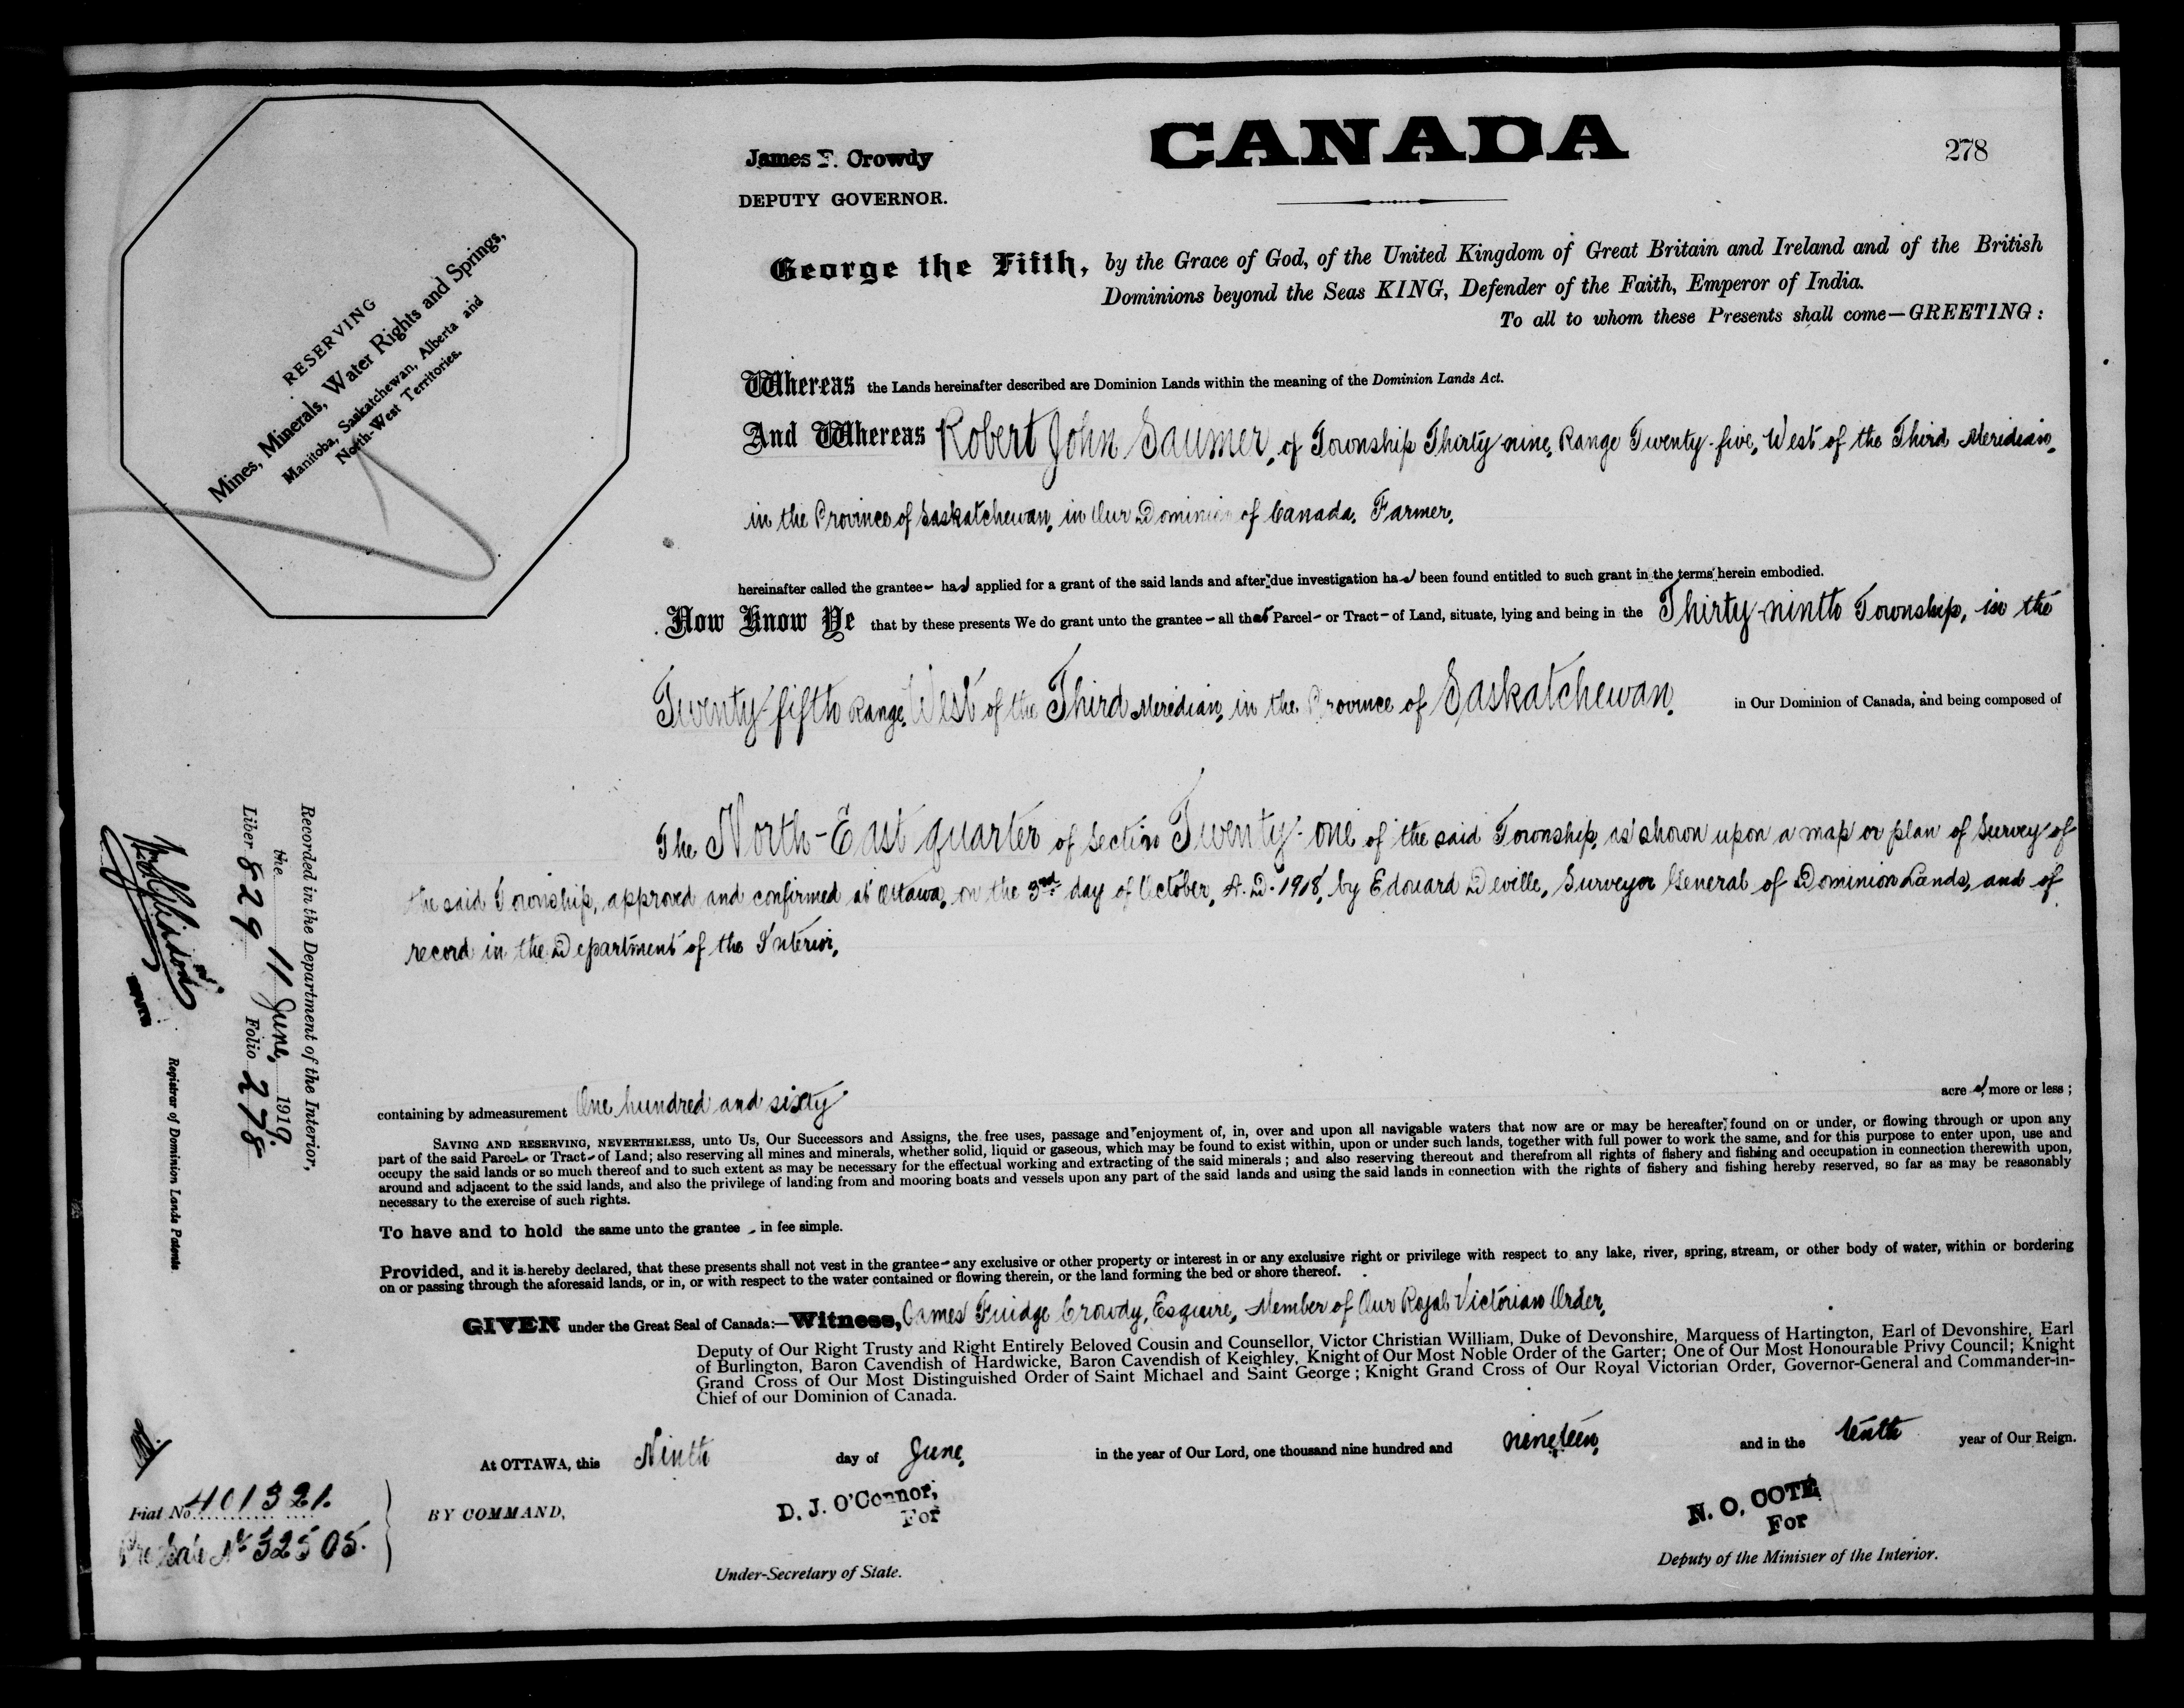 CANADA
278
James F. Crowdy
DEPUTY GOVERNOR.
RESERVING
Mines, Minerals, Water Rights and Springs,
Manitoba, Saskatchewan, Alberta and
North-West Territories.
George the Fifth, by the Grace of God, of the United Kingdom of Great Britain and Ireland and of the British
Dominions beyond the Seas KING, Defender of the Faith, Emperor of India.
To all to whom these Presents shall come—GREETING:
Whereas the Lands hereinafter described are Dominion Lands within the meaning of the Dominion Lands Act.
And Whereas Robert John Saumer, of Township Thirty-nine, Range Twenty-five, West of the Third Meridian,
in the Province of Saskatchewan, in Our Dominion of Canada, Farmer,
hereinafter called the grantee- has applied for a grant of the said lands and after due investigation has been found entitled to such grant in the terms herein embodied.
Now Know Ye that by these presents We do grant unto the grantee - all that Parcel- or Tract- of Land, situate, lying and being in the Thirty-ninth Township, in the
Twenty-fifth Range, West of the Third Meridian, in the Province of Saskatchewan, in Our Dominion of Canada, and being composed of
The North-East quarter of Section Twenty-one of the said Township, as shown upon a map or plan of Survey of
the said Township, approved and confirmed at Ottawa, on the 3rd day of October, A.D. 1918, by Edouard Deville, Surveyor General of Dominion Lands, and of
record in the Department of the Interior,
containing by admeasurement One hundred and sixty acres, more or less;
SAVING AND RESERVING, NEVERTHELESS, unto Us, Our Successors and Assigns, the free uses, passage and enjoyment of, in, over and upon all navigable waters that now are or may be hereafter found on or under, or flowing through or upon any
part of the said Parcel- or Tract- of Land; also reserving all mines and minerals, whether solid, liquid or gaseous, which may be found to exist within, upon or under such lands, together with full power to work the same, and for this purpose to enter upon, use and
occupy the said lands or so much thereof and to such extent as may be necessary for the effectual working and extracting of the said minerals; and also reserving thereout and therefrom all rights of fishery and fishing and occupation in connection therewith upon,
around and adjacent to the said lands, and also the privilege of landing from and mooring boats and vessels upon any part of the said lands and using the said lands in connection with the rights of fishery and fishing hereby reserved, so far as may be reasonably
necessary to the exercise of such rights.
To have and to hold the same unto the grantee - in fee simple.
Provided, and it is hereby declared, that these presents shall not vest in the grantee- any exclusive or other property or interest in or any exclusive right or privilege with respect to any lake, river, spring, stream, or other body of water, within or bordering
on or passing through the aforesaid lands, or in, or with respect to the water contained or flowing therein, or the land forming the bed or shore thereof.
GIVEN under the Great Seal of Canada:—Witness, James Fuidge Crowdy, Esquire, Member of Our Royal Victorian Order,
Deputy of Our Right Trusty and Right Entirely Beloved Cousin and Counsellor, Victor Christian William, Duke of Devonshire, Marquess of Hartington, Earl of Devonshire, Earl
of Burlington, Baron Cavendish of Hardwicke, Baron Cavendish of Keighley, Knight of Our Most Noble Order of the Garter; One of Our Most Honourable Privy Council; Knight
Grand Cross of Our Most Distinguished Order of Saint Michael and Saint George; Knight Grand Cross of Our Royal Victorian Order, Governor-General and Commander-in-
Chief of our Dominion of Canada.
At OTTAWA, this Ninth day of June, in the year of Our Lord, one thousand nine hundred and nineteen, and in the tenth year of Our Reign.
BY COMMAND,
D. J. O'Connor,
For
Under-Secretary of State.
N. O. COTÉ
For
Deputy of the Minister of the Interior.
Fiat No. 401321.
No 32505.
Recorded in the Department of the Interior,
the 11 June, 1919.
Liber 829 Folio 278
Registrar of Dominion Lands Patents.